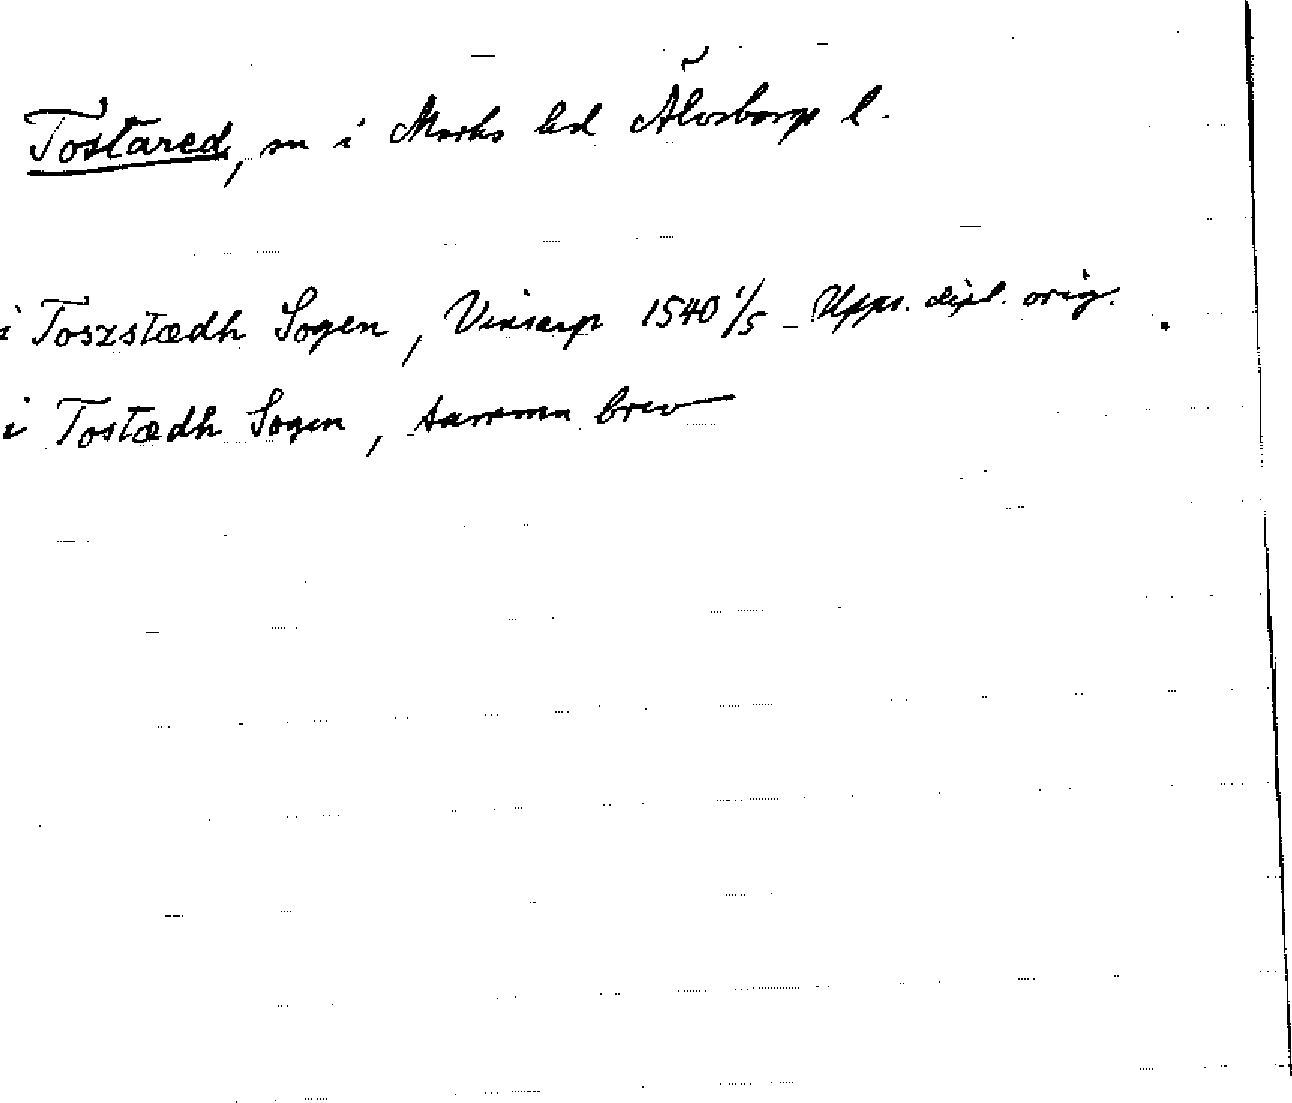 Tostared, sn i Marks hd Älvsborgs l.
i Toszstædh Sogen, Vinsarp 1540 1/5 Upps. dipl. orig.
i Tostædh Sogen, samma brev